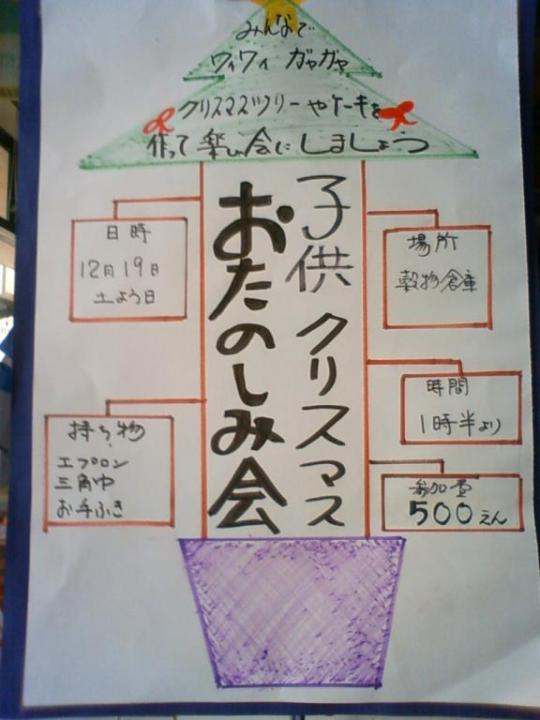 みんなで
ワイワイ ガヤガヤ
クリスマスツリーやケーキを
作って楽しい会にしましょう
子供 クリスマス
おたのしみ会
日時
12月19日
土よう日
場所
穀物倉庫
時間
1時半より
持ち物
エプロン
三角巾
お手ふき
参加費
500えん